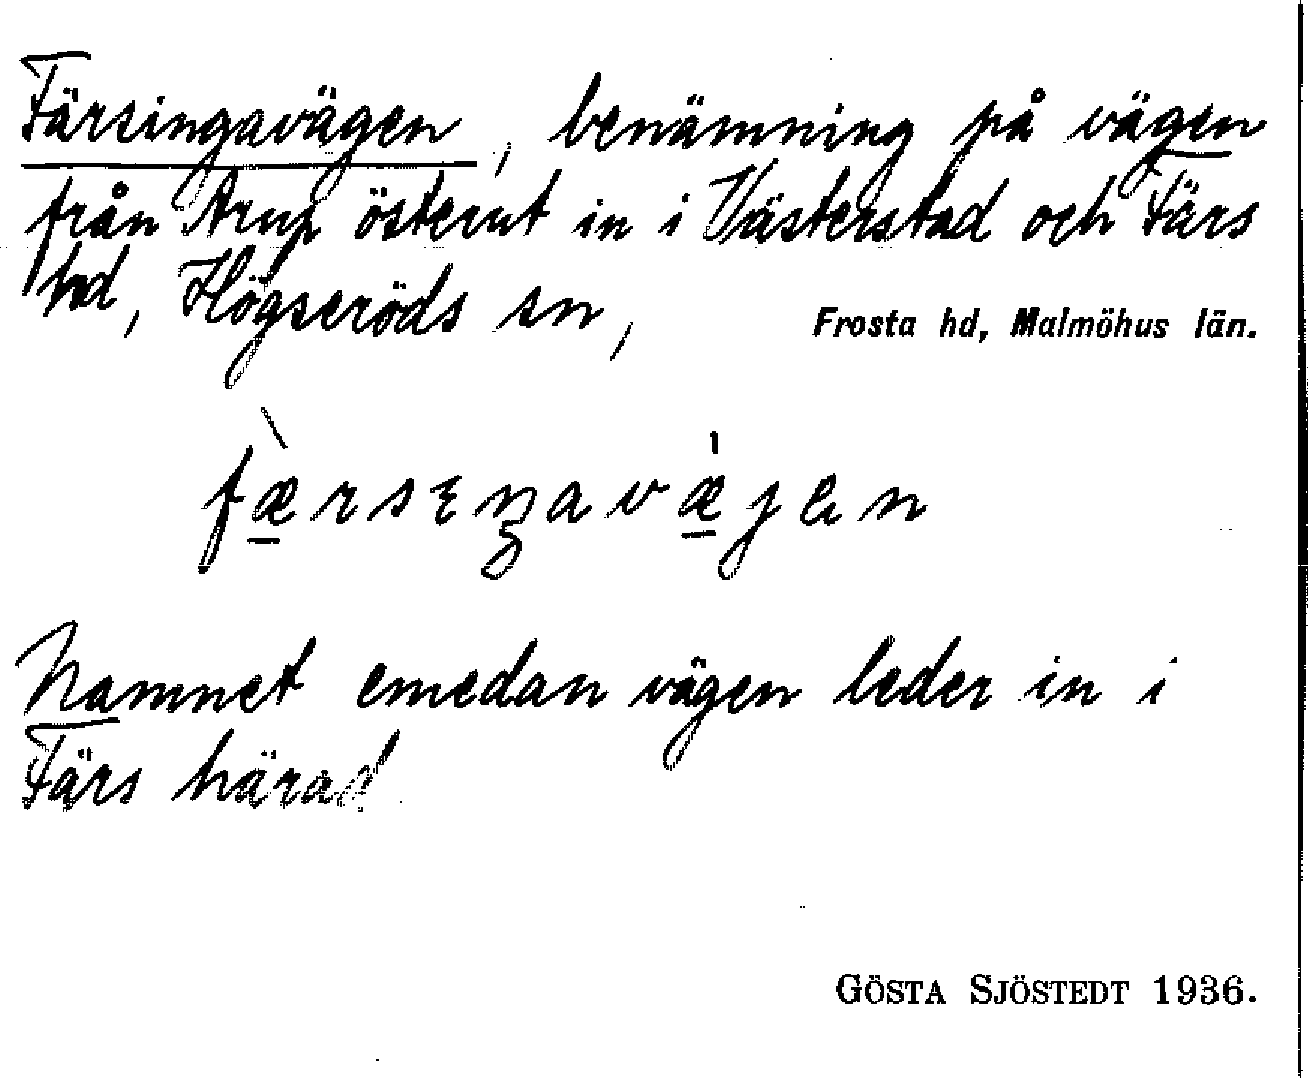 Färsingavägen, benämning på vägen
från Arup österut in i Västerstad och Färs
hd, Högseröds sn, Frosta hd, Malmöhus län.
færseŋavæjen
Namnet emedan vägen leder in i
Färs härad
GÖSTA SJÖSTEDT 1936.